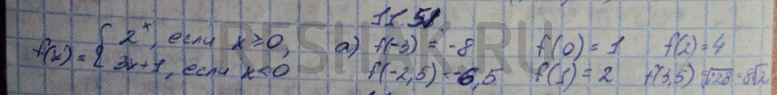 11.51.
f(x) = { 2^x, если x ≥ 0,
3x+1, если x < 0
а) f(-3) = -8 f(0) = 1 f(2) = 4
f(-2,5) = -6,5 f(1) = 2 f(3,5) = √128 = 8√2
RESHAK.RU